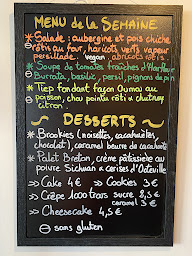 MENU de la SEMAINE
* Salade : aubergine et pois chiche
rôtis au four, haricots verts vapeur
persillade. vegan. abricots rôtis.
* Soupe de tomates fraîches d'Harfleur
⊖ Burrata, basilic, persil, pignons de pin
* Tiep fondant façon Oumou au
⊖ poisson, chou pointu rôti &
citron.
DESSERTS
* Brookies (noisettes, cacahuètes,
chocolat), caramel beurre de cacahuète
* Palet Breton, crème pâtissière au
poivre Sichuan & cerises d'Octeville
>> Cake 4€ >> Cookies 3€
>> Crêpe 1000 trous sucre 2,5€
caramel 3€
>> Cheesecake 4,5€
⊖ sans gluten